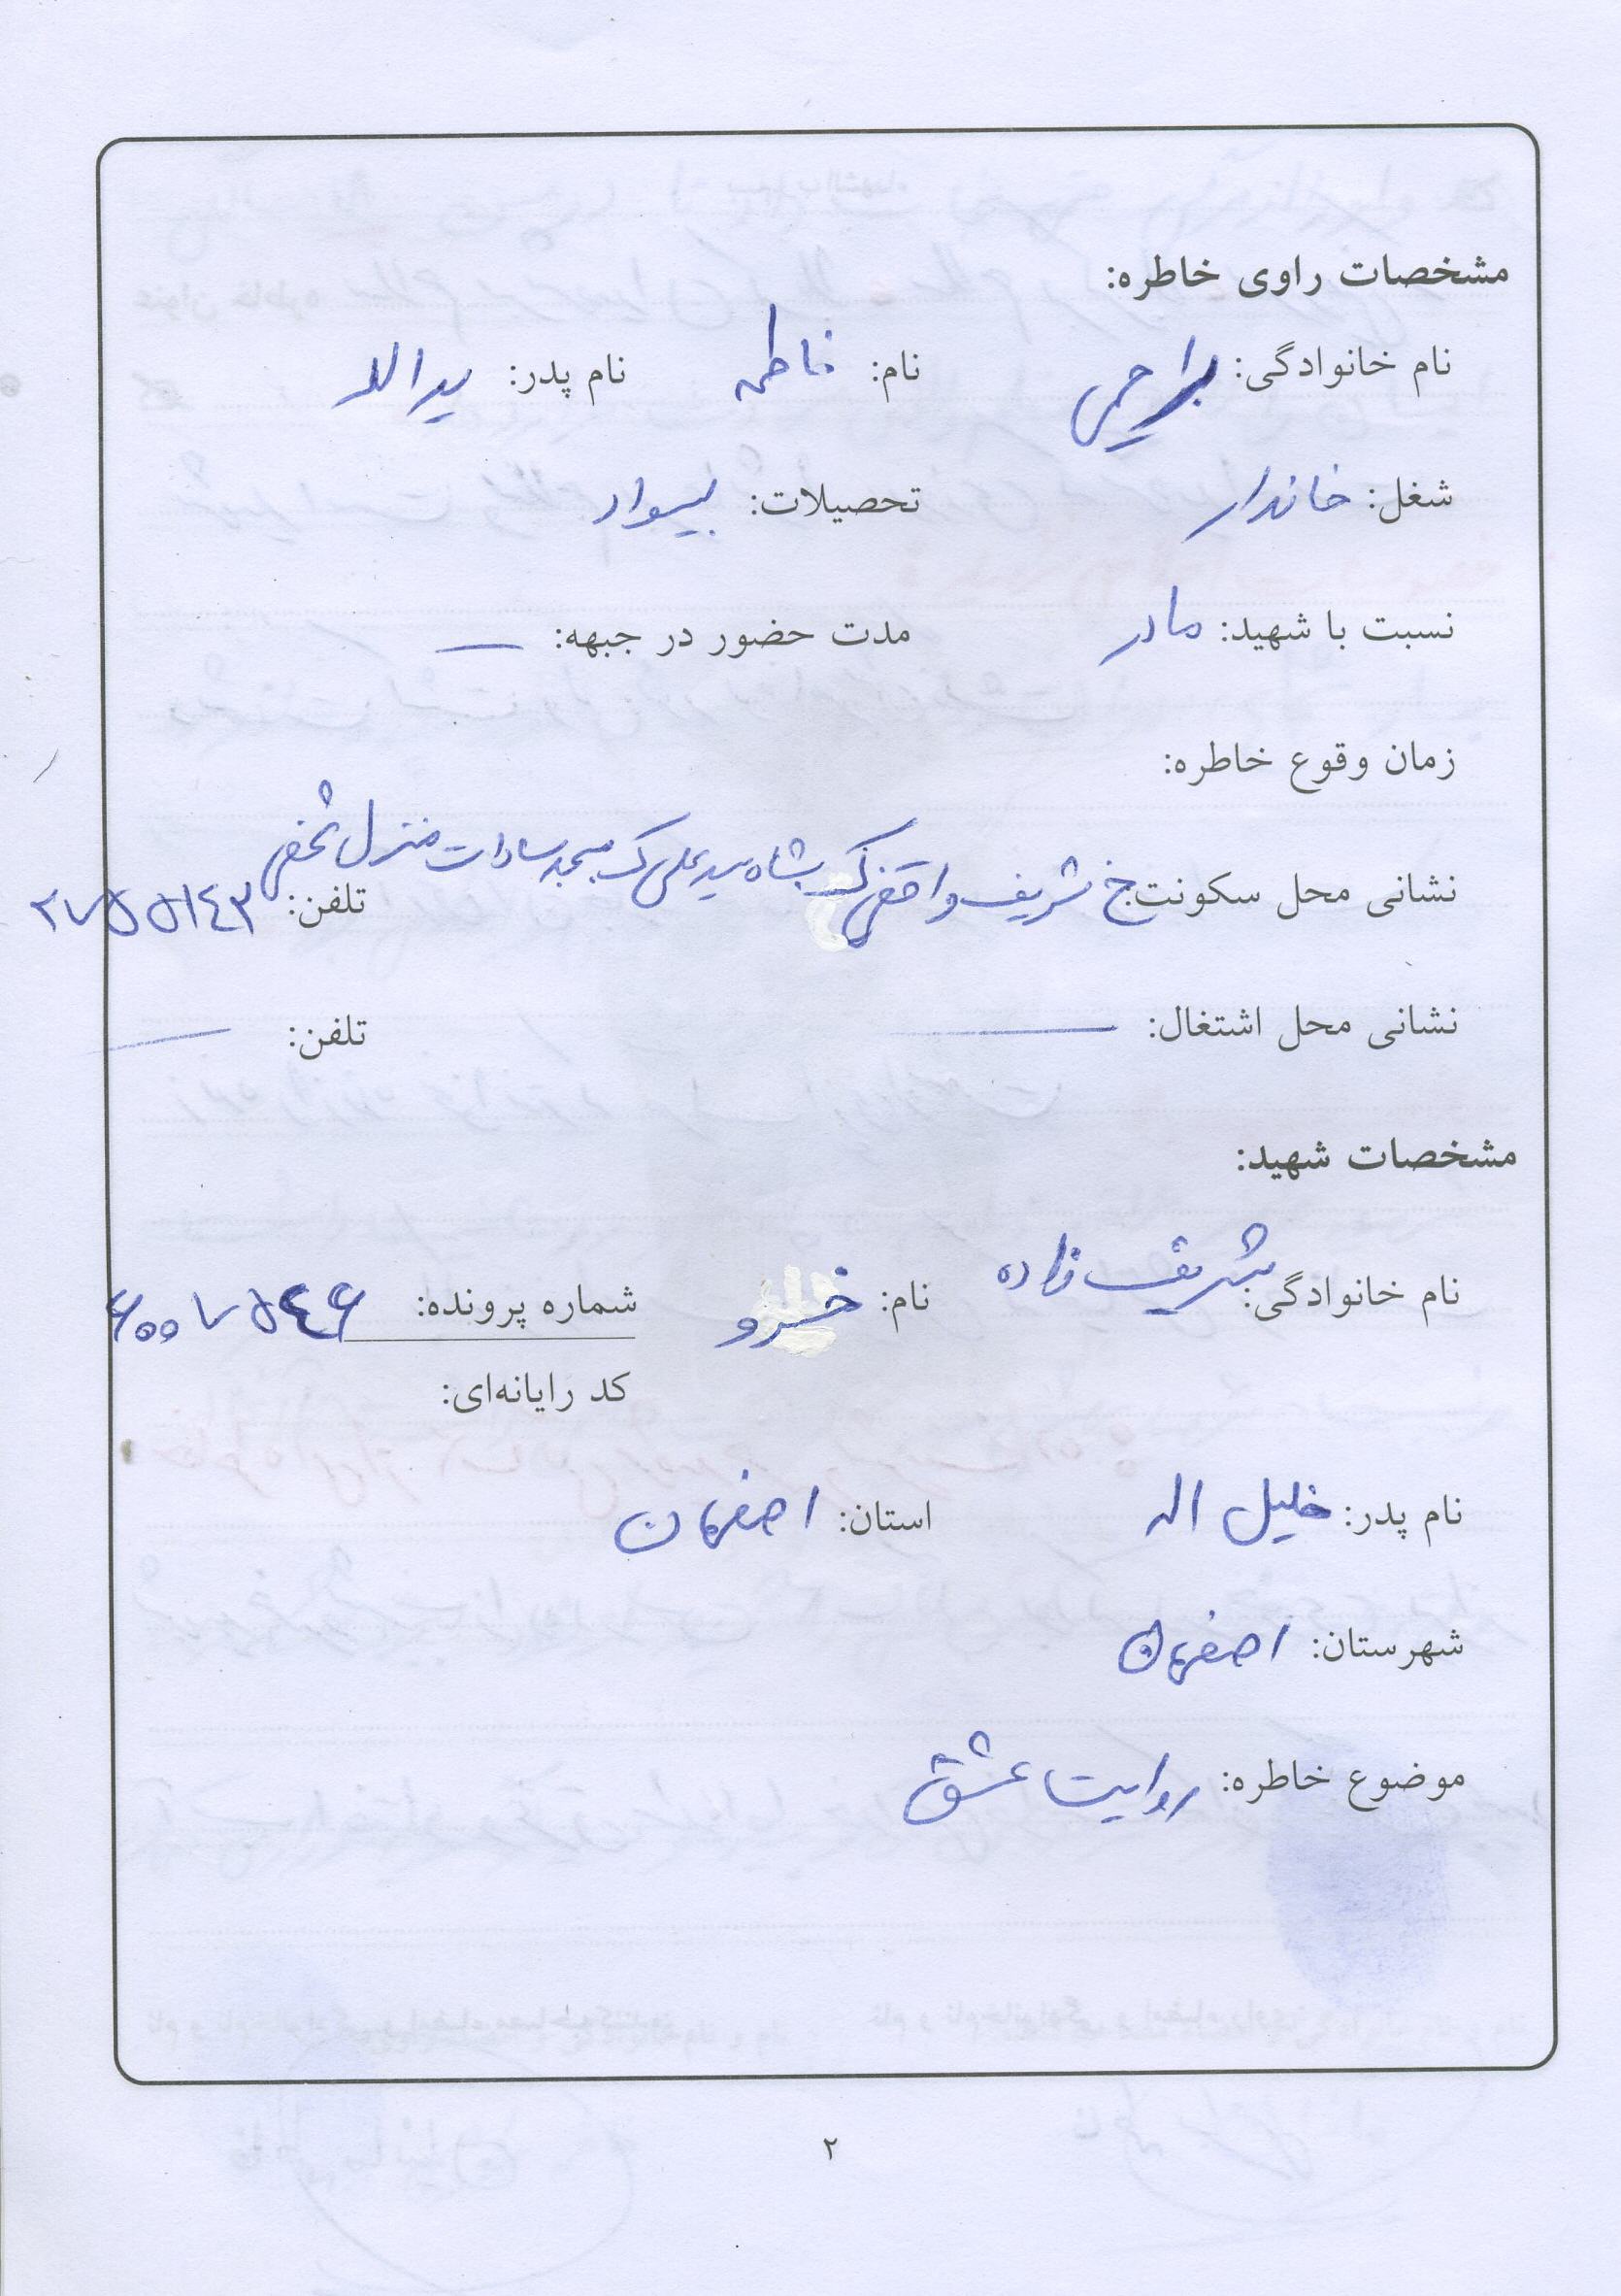 مشخصات راوی خاطره:
نام خانوادگی: براحمی نام: فاطمه نام پدر: یداله
شغل: خاندار تحصیلات: بیسواد
نسبت با شهید: مادر مدت حضور در جبهه: —
زمان وقوع خاطره:
نشانی محل سکونت خ شریف واقفی ک شاه سید علی ک مسجد سادات منزل شخصی تلفن: ۲۷۵۵۱۴۳
نشانی محل اشتغال: — تلفن: —
مشخصات شهید:
نام خانوادگی: شریف زاده نام: خسرو شماره پرونده: ۶۰۰۷۵۴۶
کد رایانه‌ای:
نام پدر: خلیل اله استان: اصفهان
شهرستان: اصفهان
موضوع خاطره: روایت عشق
۲